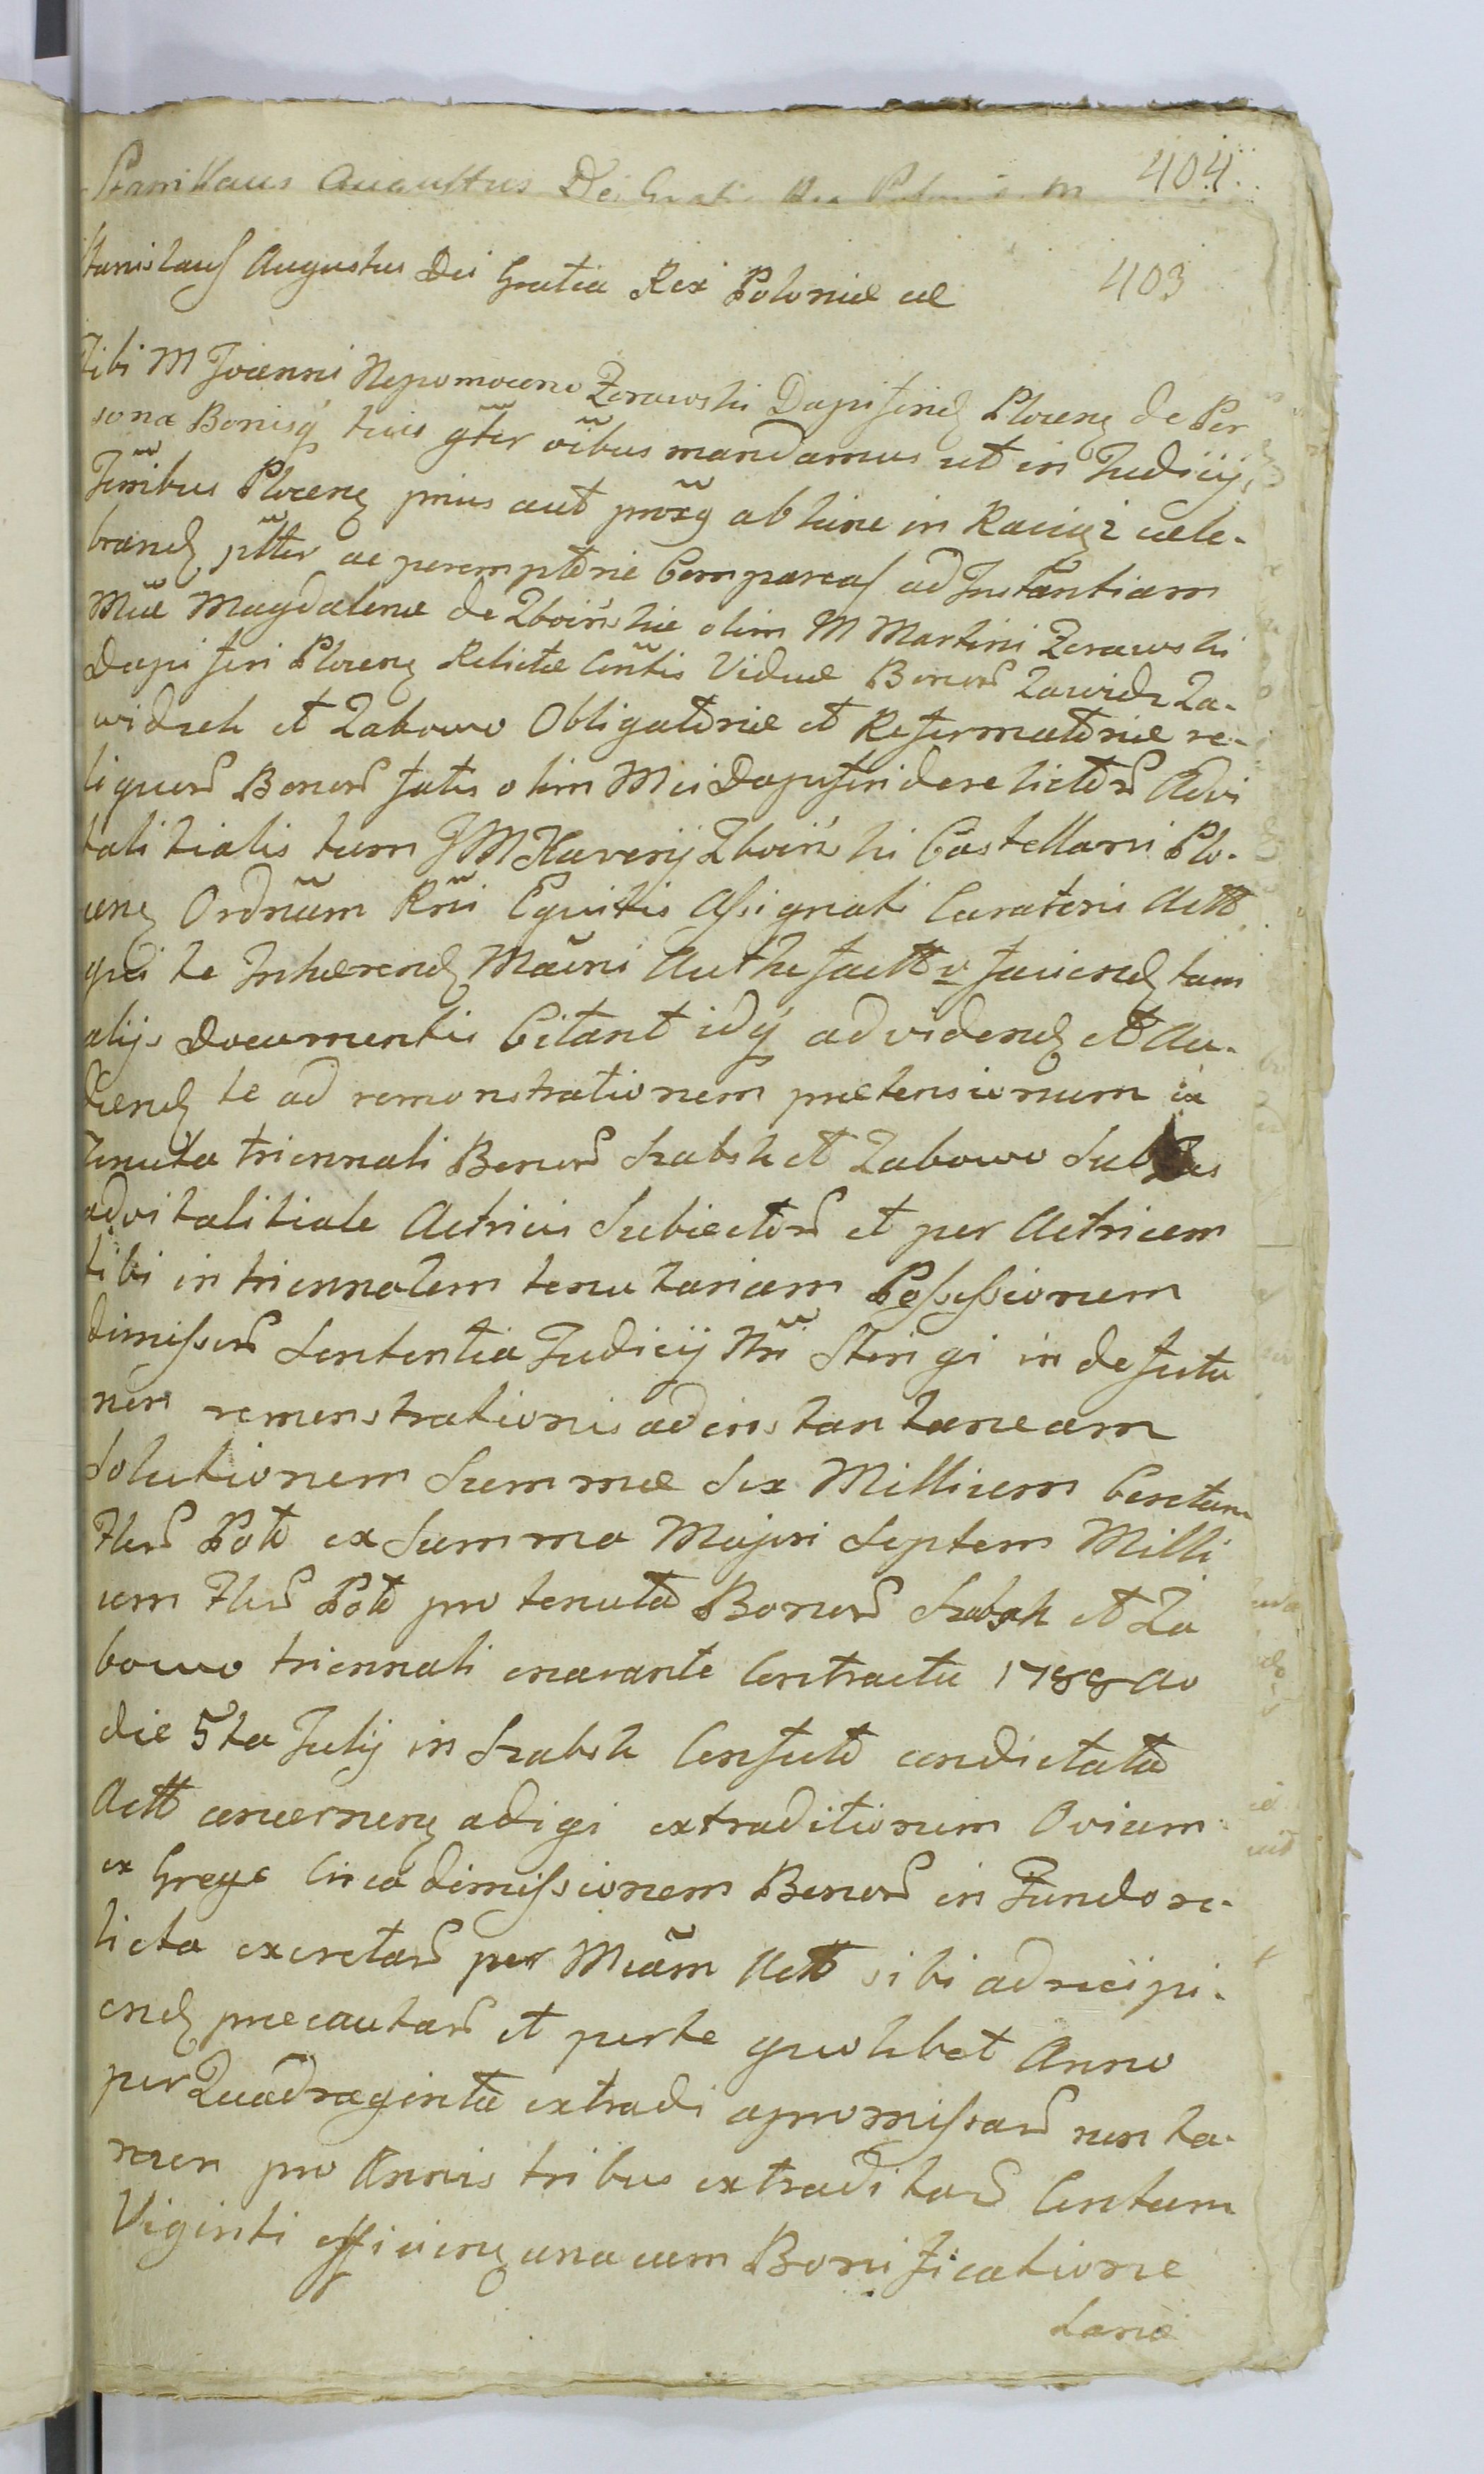 Stanislaus Augustus Dei Gratia Rex Poloniæ M 404.
Stanislaus Augustus Dei Gratia Rex Poloniæ æ 403
Tibi M Joanni Nepomoceno Zorawski Dapiferid Plocens de Per
sona Bonisq tuis gter oibus mandamus ut in Judicijs
Trribus Plocens prius aut prox abhinc in Raciąz cele-
brand ptter ac peremptorie Compareas ad Instantiam
Mcæ Magdalenæ de Zboińskie olim M Martini Zorawski
Dapiferi Plocens Relictæ Contis Viduæ Bonor Zawidz Za-
widzek et Zabowo Obligatoriæ et Reformatoriæ re-
liquor Bonor fatis olim Mci Dapiferi derelictor Advi
talitialis tum JM Xaverij Zboiński Castellani Plo-
cens Ordnum Rni Equitis Assignati Curatoris Actt
qui te Inhærend Mani Authe factt v faciend tam
alijs Documentis Citant idq ad vidend et Au-
diend te ad remonstrationem prætensionum ex
Tenuta triennali Bonor Srabsk et Zabowo Sub
advitalitiale Actricis Subiector et per Actricem
tibi in triennalem tenutariam Possessionem
dimissor Sententia Judicij Nri Stringi in defectu
nen remonstrationis ad instantaneam
Solutionem Summæ Sex Millium Centum
Flor Pol ex Summa Majori Septem Milli
um Flor Pol pro tenuta Bonor Srabsk et Za
bowo triennali enarante Contractu 1788 Ao
die 5ta Julij in Srabsk Confecto condictata
Actt concernens adigi extraditionem Ovium
ex Grege Circa dimissionem Bonor in Fundo re-
licta excretar per Mcam Actt sibi ad recipi-
end præcautar et per te quolibet Anno
per Quadraginta extradi apromissar non ta-
men pro Annis tribus extraditar Centum
Viginti efficiens una cum Bonificatione
Lanæ